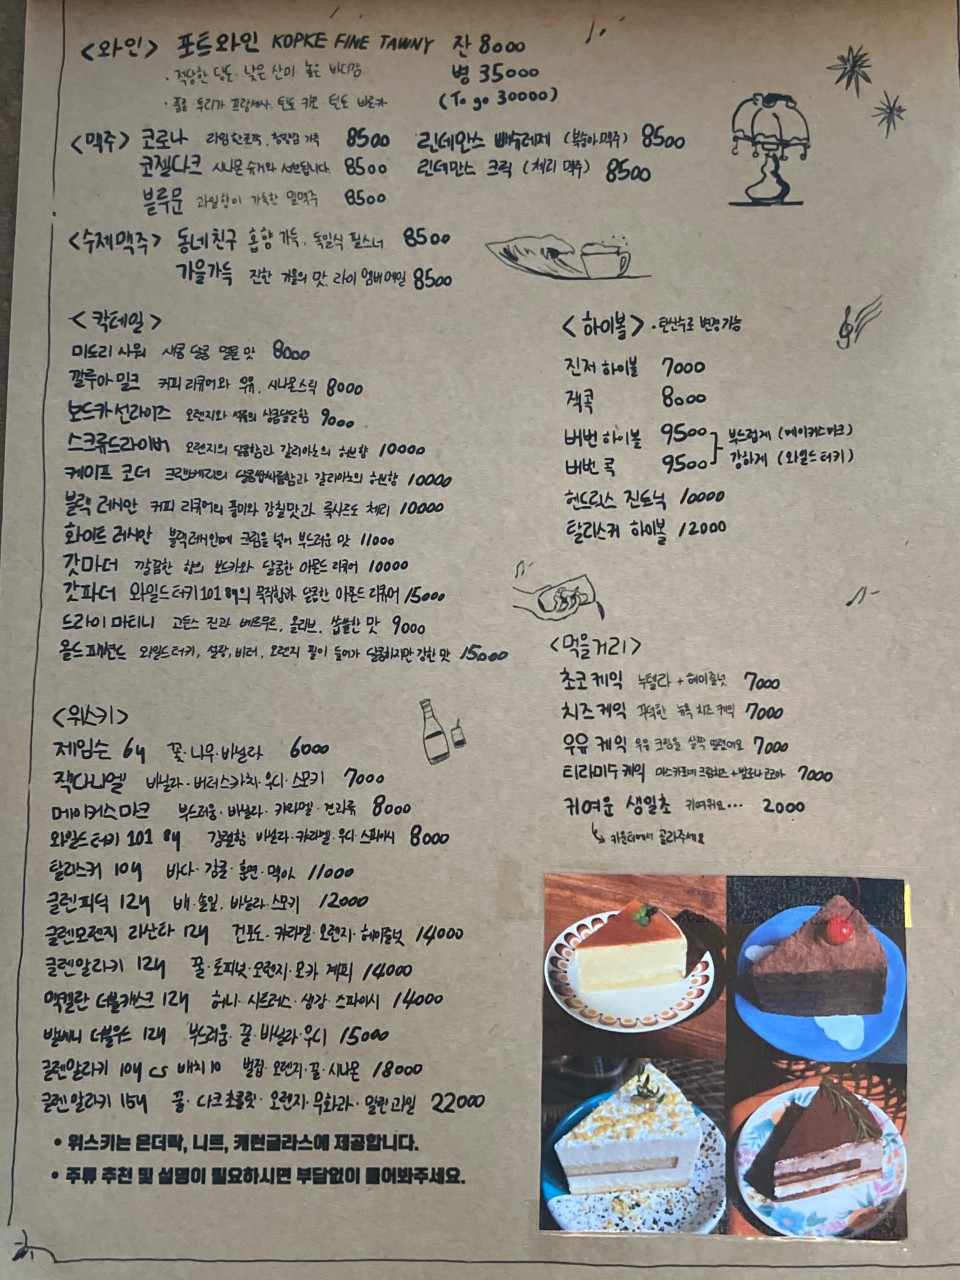 <와인> 포트와인 KOPKE FINE TAWNY 잔 8000
· 적당한 당도 · 낮은 산미 높은 바디감 병 35000
(To go 30000)
<맥주> 코로나 8500
코젤다크 시나몬 슈가와 서브됩니다. 8500
블루문 과일향이 가득한 밀맥주 8500
린데만스 빼슈레제 (복숭아맥주) 8500
린데만스 크릭 (체리 맥주) 8500
<수제맥주> 동네친구 홉향 가득, 독일식 필스너 8500
가을가득 진한 가을의 맛, 라이 엠버에일 8500
<칵테일>
미도리 사워 새콤 달콤 멜론 맛 8000
깔루아 밀크 커피 리큐어와 우유, 시나몬스틱 8000
보드카 선라이즈 오렌지와 석류의 상큼달달함 9000
스크류드라이버 오렌지의 달콤함과 갈리아노의 허브향 10000
케이프 코더 크랜베리의 달콤쌉싸름함과 갈리아노의 허브향 10000
블랙 러시안 커피 리큐어의 풍미와 감칠맛과 룩사르도 체리 10000
화이트 러시안 블랙러시안에 크림을 넣어 부드러운 맛 11000
갓마더 깔끔한 향의 보드카와 달콤한 아몬드 리큐어 10000
갓파더 와일드터키101 8y의 묵직함과 달콤한 아몬드 리큐어 15000
드라이 마티니 고든스 진과 베르무트, 올리브, 쌉쌀한 맛 9000
올드패션드 와일드터키, 설탕, 비터, 오렌지 필이 들어가 달콤하지만 강한 맛 15000
<하이볼> · 탄산수로 변경가능
진저 하이볼 7000
잭콕 8000
버번 하이볼 9500 부드럽게 (메이커스마크)
버번 콕 9500 강하게 (와일드터키)
헨드릭스 진토닉 10000
탈리스커 하이볼 12000
<먹을거리>
초코케익 누텔라 + 헤이즐넛 7000
치즈케익 꾸덕한 뉴욕 치즈케익 7000
우유 케익 우유 크림을 살짝 얼렸어요 7000
티라미수케익 마스카포네 크림치즈 + 발로나 코코아 7000
귀여운 생일초 귀여워요··· 2000
카운터에서 골라주세요
<위스키>
제임슨 6y 꽃·나무·바닐라 6000
잭다니엘 바닐라·버터스카치·우디·스모키 7000
메이커스마크 부드러움·바닐라·카라멜·견과류 8000
와일드터키 101 8y 강렬함·바닐라·카라멜·우디·스파이시 8000
탈리스커 10y 바다·감귤·훈연·먹아 11000
글렌피딕 12y 배·솔잎, 바닐라·스모키 12000
글렌모렌지 라산타 12y 건포도·카라멜·오렌지·헤이즐넛 14000
글렌알라키 12y 꿀·토피넛·오렌지·모카 계피 14000
맥켈란 더블캐스크 12y 허니·시트러스·생강·스파이시 14000
발베니 더블우드 12y 부드러움·꿀·바닐라·우디 15000
글렌알라키 10y cs 배치10 벌집·오렌지·꿀·시나몬 18000
글렌알라키 15y 꿀·다크초콜릿·오렌지·무화과·말린과일 22000
• 위스키는 온더락, 니트, 캐런글라스에 제공합니다.
• 주류 추천 및 설명이 필요하시면 부담없이 물어봐주세요.